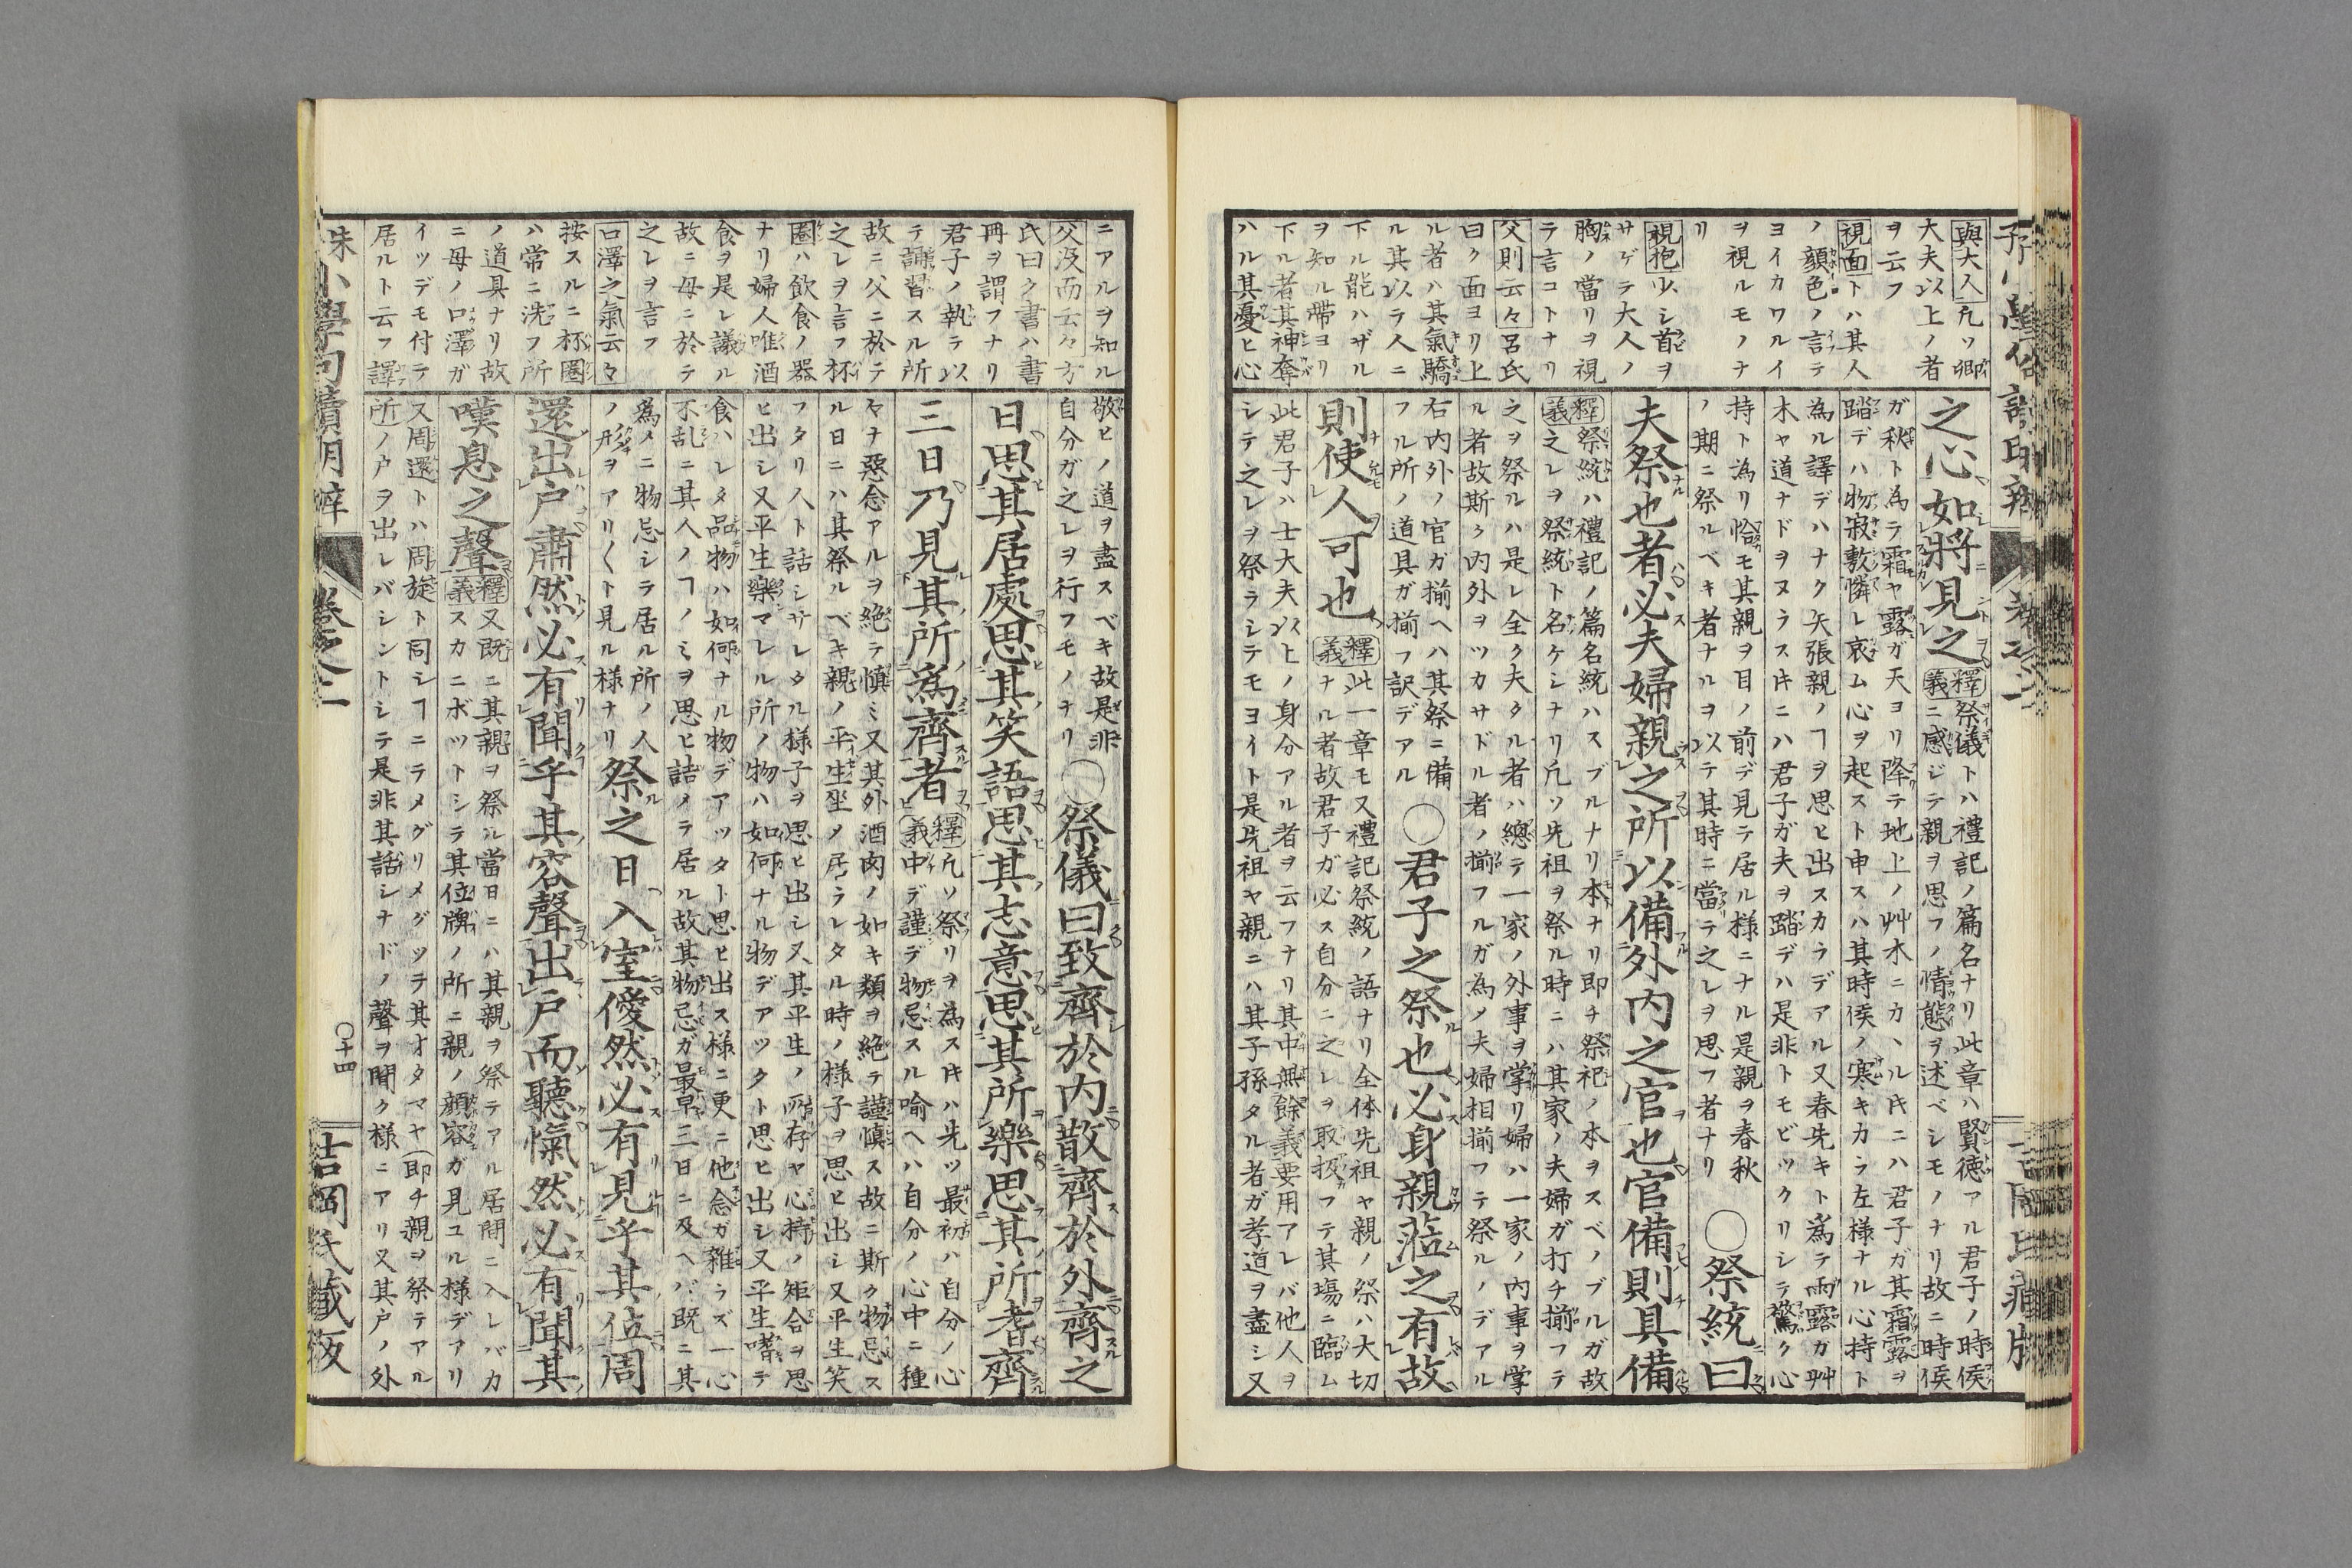 與大人凡ソ卿
大夫以上ノ者
ヲ云フ
視面トハ其人
ノ顔色ノ言テ
ヨイカワルイ
ヲ視ルモノナ
リ
視抱少シ首ヲ
サゲラ大人ノ
胸ノ當リヲ視
ラ言コトナリ
父則云々呂氏
曰ク面ヨリ上
ル者ハ其氣驕
ル其以テ人ニ
下ル能ハザル
ヲ知ル帶ヨリ
下ル者其神奪
ハル其憂ヒ心
之心如將見之
釋義 祭儀トハ禮記ノ篇名ナリ此章ハ賢德アル君子ノ時侯
ニ感ジテ親ヲ思フノ情態ヲ述ベシモノナリ故ニ時侯
ガ秋ト為ラ霜ヤ露ガ天ヨリ降テ地上ノ艸木ニカヽル片ニハ君子ガ其霜露ヲ
踏デハ物寂敷憐レ哀ム心ヲ起スト申スハ其時侯ノ寒キカラ左様ナル心持ト
為ル譯デハナク矢張親ノヿヲ思ヒ出スカラデアル又春先キト為テ雨露ガ艸
木ヤ道ナドヲヌラス片ニハ君子ガ夫ヲ踏デハ是非トモビックリシテ驚ク心
持ト為リ恰モ其親ヲ目ノ前デ見テ居ル様ニナル是親ヲ春秋
ノ期ニ祭ルベキ者ナルヲ以テ其時ニ當テ之レヲ思フ者ナリ
○祭統曰
夫祭也者必夫婦親之所以備外内之官也官備則具備
釋義 祭統ハ禮記ノ篇名統ハスブルナリ本ナリ即チ祭祀ノ本ヲスベノブルガ故
之レヲ祭統ト名ケシナリ凡ソ先祖ヲ祭ル時ニハ其家ノ夫婦ガ打チ揃フテ
之ヲ祭ルハ是レ全ク夫タル者ハ總テ一家ノ外事ヲ掌リ婦ハ一家ノ内事ヲ掌
ル者故斯ク内外ヲツカサドル者ノ揃フルガ為メ夫婦相揃フテ祭ルノデアル
右内外ノ官ガ揃ヘハ其祭ニ備
フル所ノ道具ガ揃フ訳デアル
○君子之祭也必身親蒞之有故
則使人可也
釋義 此一章モ又禮記祭統ノ語ナリ全体先祖ヤ親ノ祭ハ大切
ナル者故君子ガ必ス自分ニ之レヲ取扱フテ其場ニ臨ム
此君子ハ士大夫以上ノ身分アル者ヲ云フナリ其中無餘義要用アレバ他人ヲ
シテ之レヲ祭ラシテモヨイト是先祖ヤ親ニハ其子孫タル者ガ孝道ヲ盡シ又
ニアルヲ知ル
父没而云々方
氏曰ク書ハ書
冊ヲ謂フナリ
君子ノ執テ以
テ誦習スル所
故ニ父ニ於テ
之レヲ言フ杯
圏ハ飲食ノ器
ナリ婦人唯酒
食ヲ是レ議ル
故ニ母ニ於テ
之レヲ言フ
口澤之氣云々
按スルニ杯圏
ハ常ニ洗フ所
ノ道具ナリ故
ニ母ノ口澤ガ
イツデモ付テ
居ルト云フ譯
敬ヒノ道ヲ盡スベキ故是非
自分ガ之レヲ行フモノナリ
○祭儀曰致齊於内散齊於外齊之
日思其居處思其笑語思其志意思其所樂思其所耆齊
三日乃見其所為齊者
釋義 凡ソ祭リヲ為ス片ハ先ツ最初ハ自分ノ心
中デ謹デ物忌スル喻ヘハ自分ノ心中ニ種
々ナ惡念アルヲ絶テ慎ミ又其外酒肉ノ如キ類ヲ絶テ謹慎ス故ニ斯ク物忌ス
ル日ニハ其祭ルベキ親ノ平生坐メ居ラレタル時ノ様子ヲ思ヒ出シ又平生笑
フタリ人ト話シサレタル様子ヲ思ヒ出シ又其平生ノ所存ヤ心持ノ矩合ヲ思
ヒ出シ又平生樂マレル所ノ物ハ如何ナル物デアツクト思ヒ出シ又平生嗜テ
食ハレタ品物ハ如何ナル物デアッタト思ヒ出ス様ニ更ニ他念ガ雜ラズ一心
不乱ニ其人ノヿノミヲ思ヒ詰メラ居ル故其物忌ガ最早三日ニ及ヘバ既ニ其
為メニ物忌シラ居ル所ノ人
ノ形ヲアリ〱ト見ル様ナリ
祭之日入室僾然必有見乎其位周
還出戸肅然必有聞乎其容聲出戸而聽愾然必有聞其
嘆息之聲
釋義 又既ニ其親ヲ祭ル當日ニハ其親ヲ祭テアル居間ニ入レバカ
スカニボットシラ其位牌ノ所ニ親ノ顔容ガ見ユル様デアリ
又周還トハ周旋ト同シヿニラメグリメグッテ其オタマヤ(即チ親ヲ祭テアル
所)ノ戸ヲ出レバシントシテ是非其話シナドノ聲ヲ聞ク様ニアリ又其戸ノ外
小學句讀明辨
卷之二
○十四
吉岡氏藏板